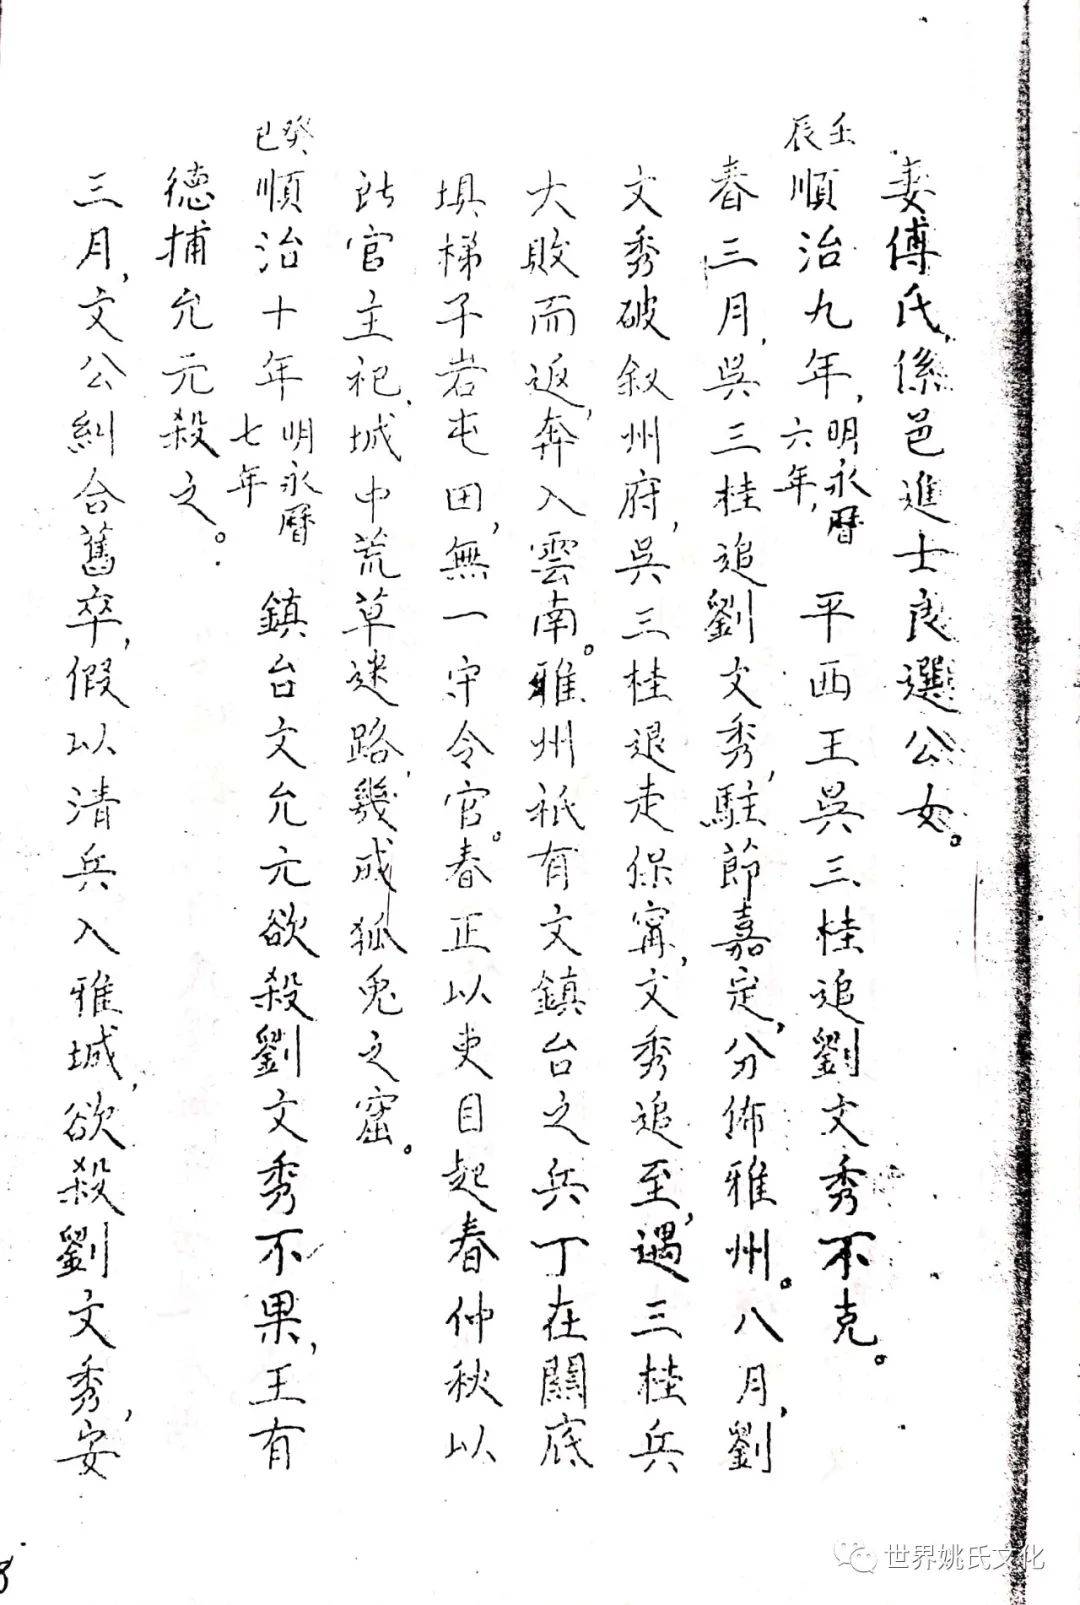 妻傅氏,係邑進士良選公女。
壬辰 順治九年,明永曆六年,平西王吳三桂追劉文秀不克。
春三月,吳三桂追劉文秀,駐節嘉定,分佈雅州。八月,劉
文秀破叙州府,吳三桂退走保甯,文秀追至,遇三桂兵
大敗而返,奔入雲南。雅州祇有文鎮台之兵丁在關底
埧梯子岩屯田,無一守令官。春正以吏目起春仲秋以
此官主祀,城中荒草迷路,幾成狐兎之窟。
癸巳 順治十年 明永曆七年 鎮台文允元欲殺劉文秀不果,王有
德捕允元殺之。
三月,文公糾合舊卒,假以清兵入雅城,欲殺劉文秀,安
世界姚氏文化